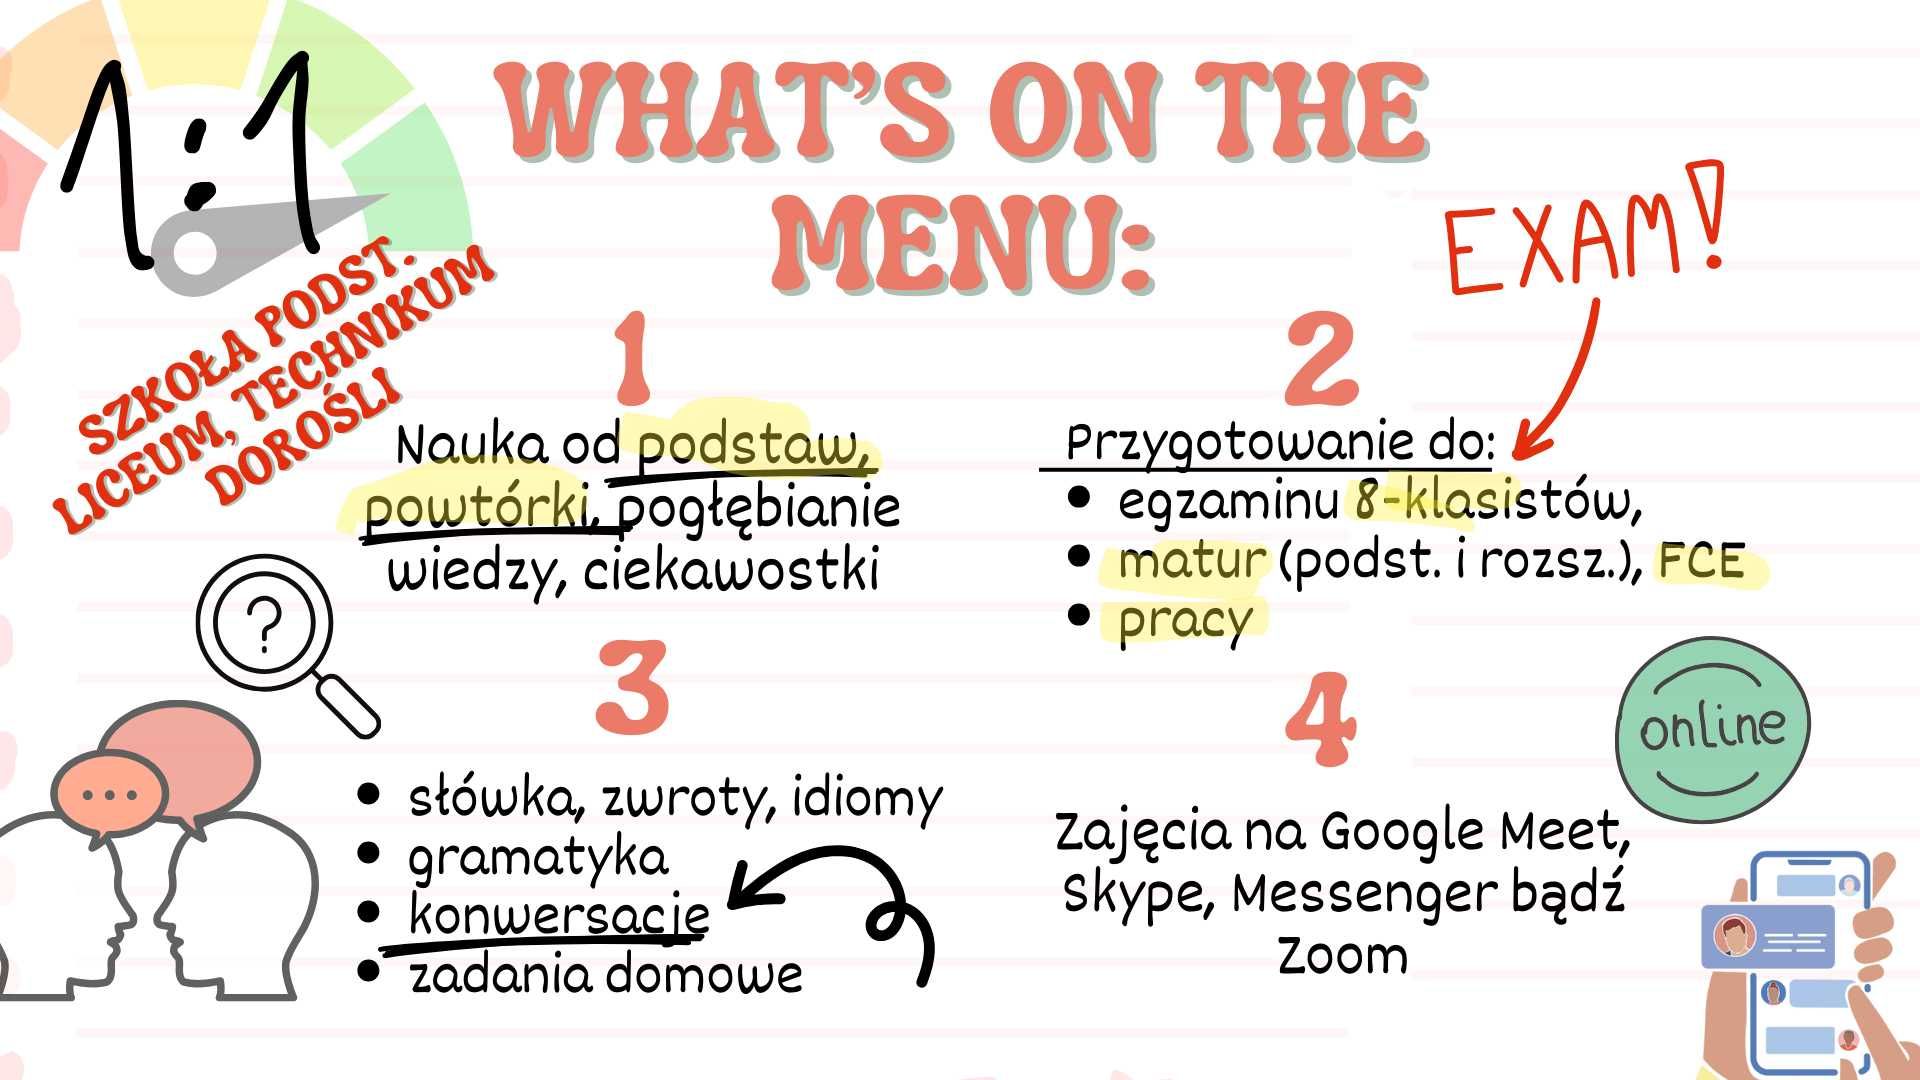 1:1
WHAT'S ON THE
MENU:
SZKOŁA PODST.
LICEUM, TECHNIKUM
DOROŚLI
EXAM!
1
Nauka od podstaw,
powtórki, pogłębianie
wiedzy, ciekawostki
2
Przygotowanie do:
• egzaminu 8-klasistów,
• matur (podst. i rozsz.), FCE
• pracy
?
3
• słówka, zwroty, idiomy
• gramatyka
• konwersacje
• zadania domowe
4
online
Zajęcia na Google Meet,
Skype, Messenger bądź
Zoom